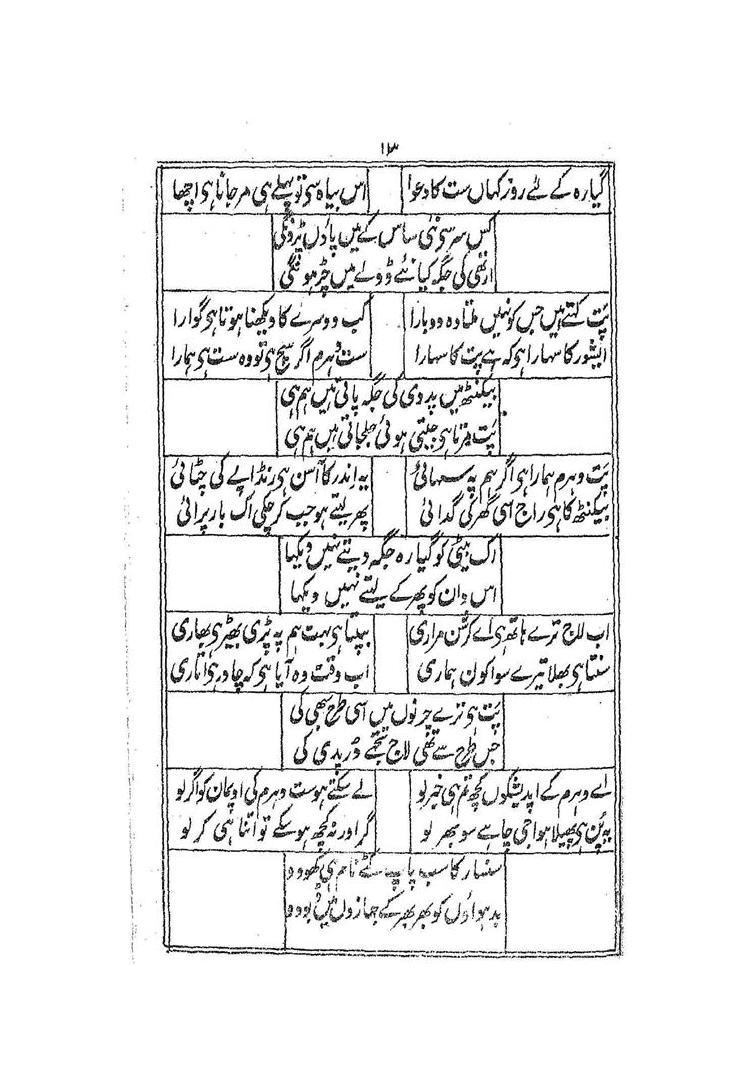 ۱۳
گیارہ کے لئے روز کہاں ست کا دعوا اس بیاہ سی تو پہلے ہی مر جانا ہی اچھا
کس سر سی نئی ساس کے میں پاؤں پڑونگی
ارتھی کی جگہ کیا نئے ڈولے میں چڑہونگی
پت کہتے ہیں جس کو نہیں ملتا وہ دوبارا کب دوسرے کا دیکھنا ہوتا ہی گوارا
ایشور کا سہارا ہی کہ ہے پت کا سہارا ست دہرم اگر سچ ہی تو وہ ست ہی ہمارا
بیکنٹھ میں پدوی کی جگہ پاتی ہیں ہم ہی
پت مرتا ہی جیتی ہوئی جلجاتی ہیں ہم ہی
پت دہرم ہمارا ہی اگر ہم پہ سہائی یہ اندر کا آسن ہی رنڈاپے کی چٹائی
بیکنٹھ کا ہی راج اسی گھر کی گدائی پھر لیتے ہو جب کر چکی اک بار پرائی
اک بیٹی کو گیارہ جگہ دیتے نہیں دیکہا
اس دان کو پھر کے لیتے نہیں دیکہا
اب لاج ترے ہاتھ ہی اے کرشن مراری بپتا ہی بہت ہم پہ پڑی بھیڑ ہی بھاری
سنتا ہی بھلا تیرے سوا کون ہماری اب وقت وہ آیا ہی کہ چادر ہی اتاری
پت ہی ترے چرنوں میں اسی طرح سبھی کی
جس طرح سے تھی لاج تجھے درپدی کی
اے دہرم کے اپدیشکوں کچھ تم ہی خبر لو لے سکتے ہو ست دہرم کی اوپمان کو اگر لو
یہ پن ہی پھیلا ہوا جی چاہے سو بھر لو گر اور نہ کچھ ہو سکے تو اتنا ہی کر لو
سنسار کا سب پاپ کٹے نام ہی کھووو
بدہواؤں کو بھر بھر کے جہازوں میں ڈبووو